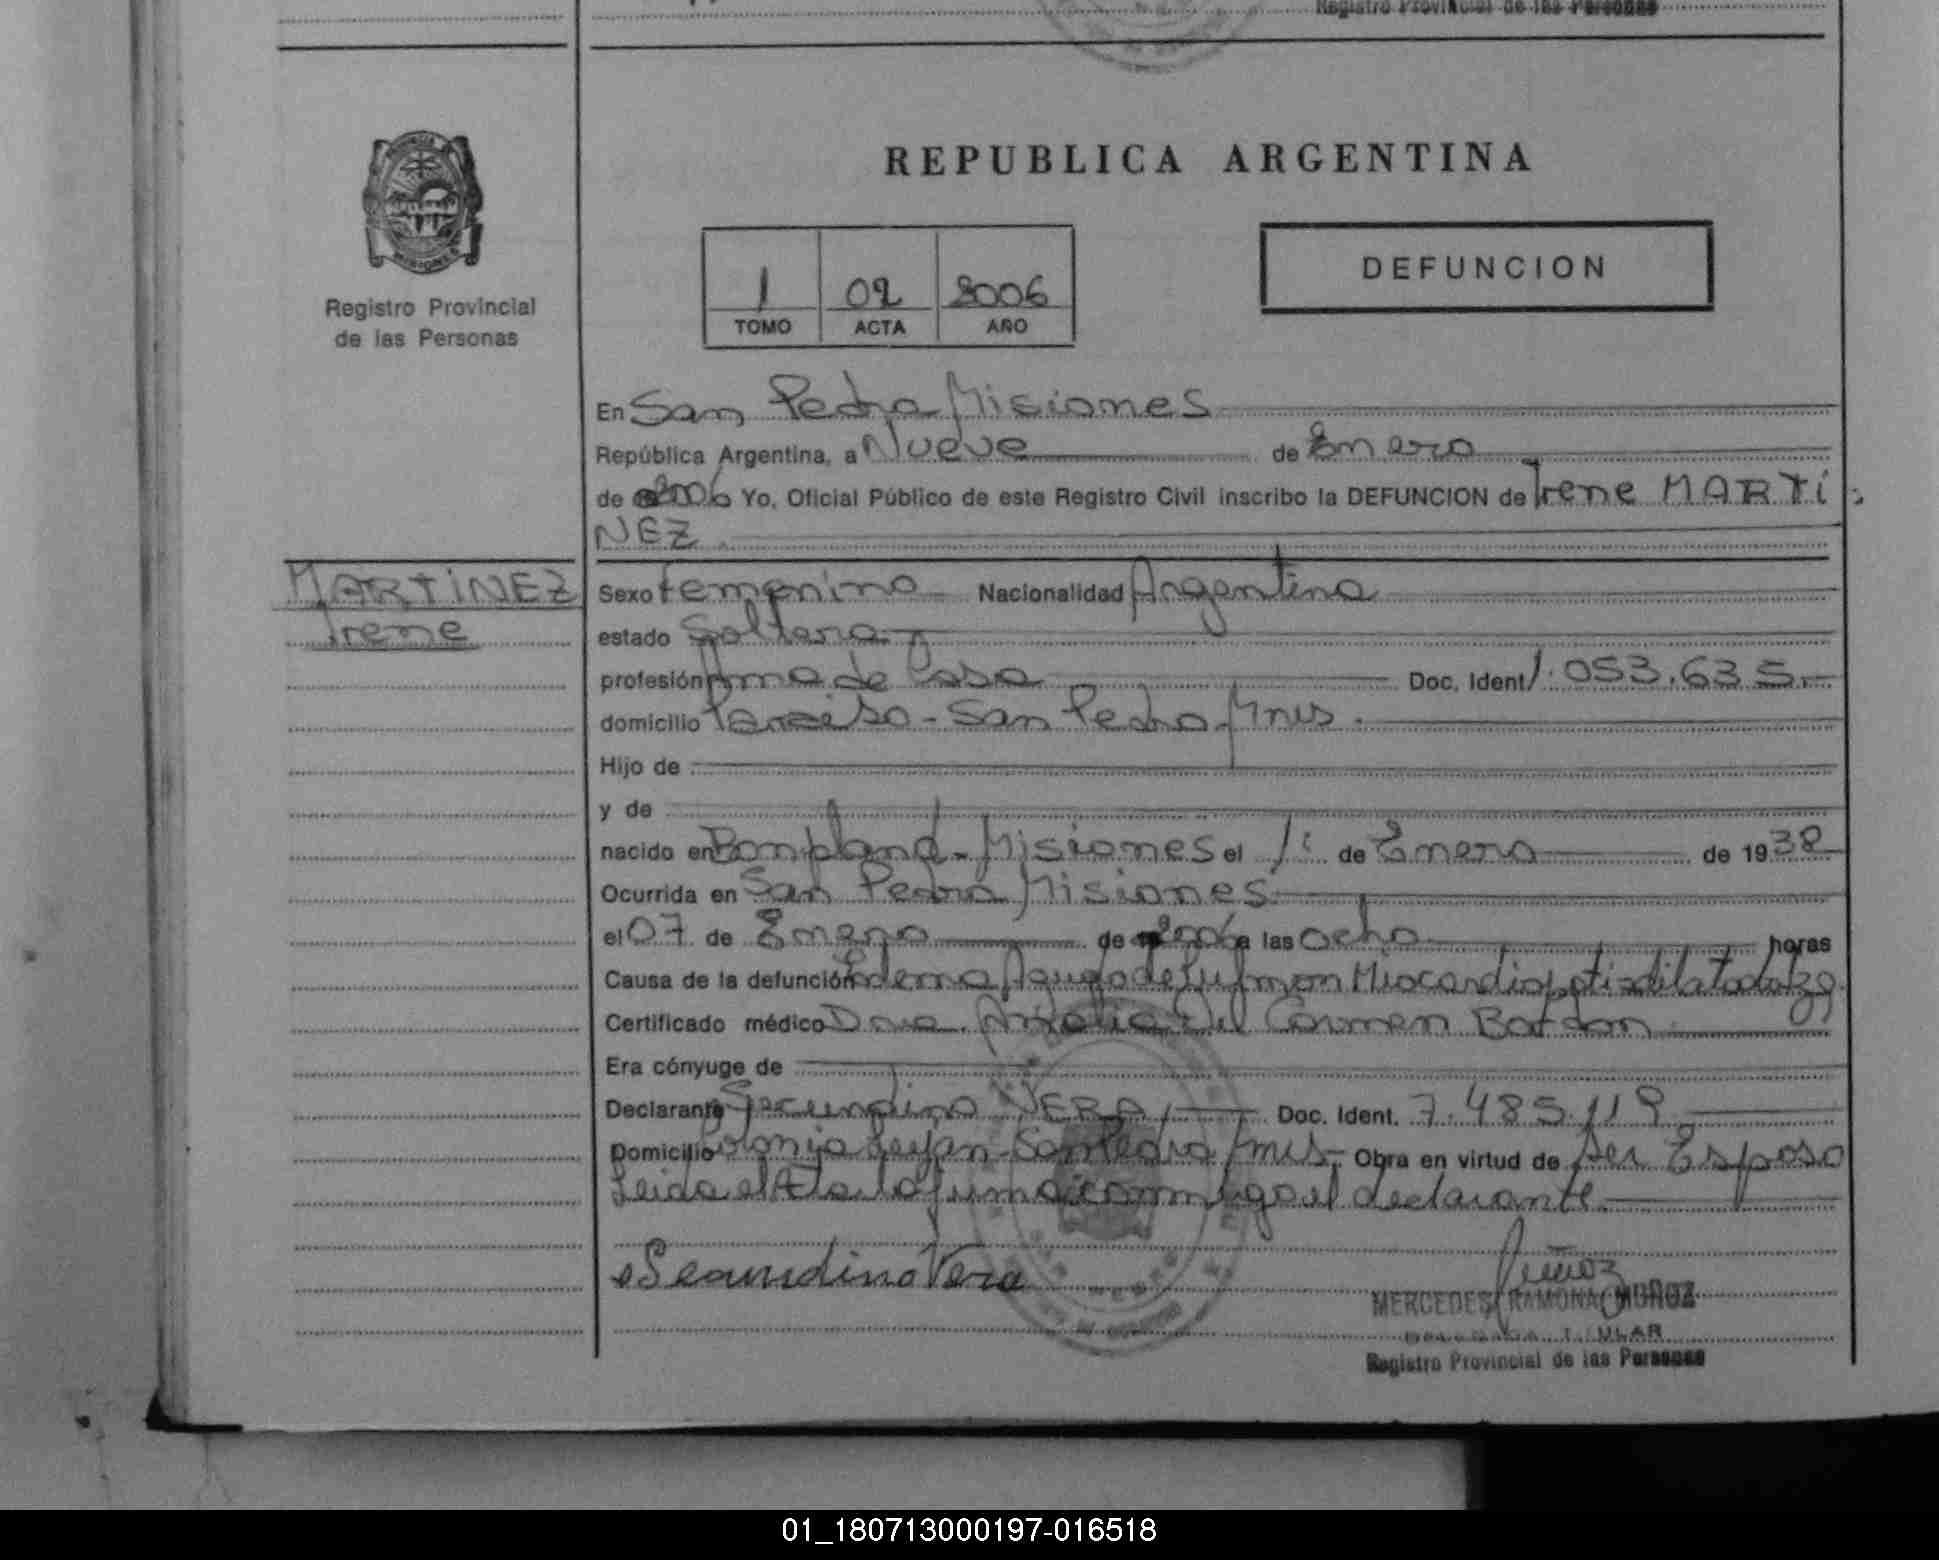 Registro Provincial de las Personas
REPUBLICA ARGENTINA
1 02 2006
TOMO ACTA AÑO
DEFUNCION
Registro Provincial
de las Personas
En San Pedro Misiones
República Argentina, a Nueve de Enero
de 2006 Yo, Oficial Público de este Registro Civil inscribo la DEFUNCION de Irene MARTI
NEZ.
MARTINEZ
Irene
Sexo femenino Nacionalidad Argentina
estado Soltera
profesión Ama de Casa Doc. Ident 1.053.635.
domicilio Paraiso - San Pedro - Mnes.
Hijo de
y de
nacido en Bonpland - Misiones el 1º de Enero de 1938
Ocurrida en San Pedro Misiones
el 07 de Enero de 2006 a las ocho horas
Causa de la defunción Edema Agudo de Pulmon Miocardiopatia dilatada
Certificado médico Dra. Del Carmen
Era cónyuge de
Declarante Secundino VERA, Doc. Ident. 7.485.119
Domicilio Colonia San Pedro Mnes - Obra en virtud de ser Esposo
Leida el Acta la firma conmigo el declarante.
Secundino Vera
Muñoz
MERCEDES RAMONA MUÑOZ
DELEGADA TITULAR
Registro Provincial de las Personas
01_180713000197-016518